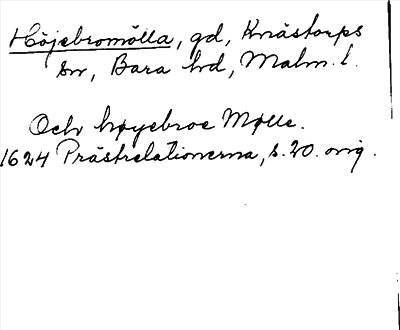 Höjebromölla, gd, Knästorps
sn, Bara hd, Malm. l.
Och høyebroe Mølle.
1624 Prästrelationerna, s. 20. orig.